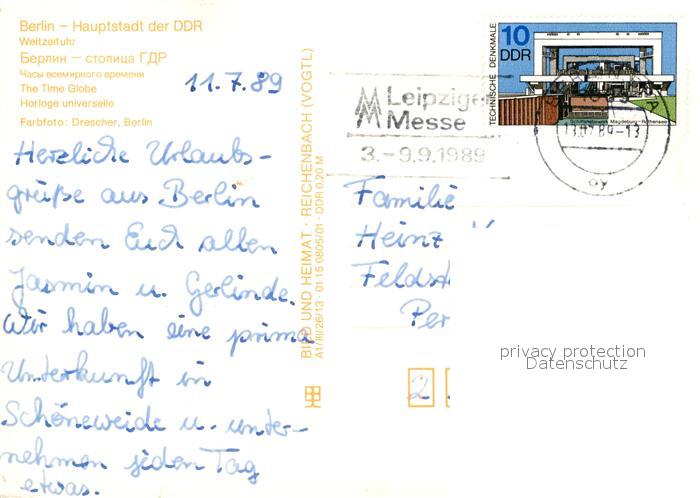 Berlin – Hauptstadt der DDR
Weltzeituhr
Берлин — столица ГДР
Часы всемирного времени
The Time Globe
Horloge universelle
Farbfoto: Drescher, Berlin
11.7.89
Herzliche Urlaubs-
grüße aus Berlin
senden Euch allen
Jasmin u. Gerlinde.
Wir haben eine prima
Unterkunft in
Schöneweide u. unter-
nehmen jeden Tag
etwas.
BILD UND HEIMAT · REICHENBACH (VOGTL)
A1/III/26/13 · 01 15 0805/01 · DDR 0,20 M
Leipziger
Messe
3.–9.9.1989
TECHNISCHE DENKMALE
10
DDR
Magdeburg-Rothensee
13.07.89-13
Familie
Heinz
Feldst
Per
2
privacy protection
Datenschutz